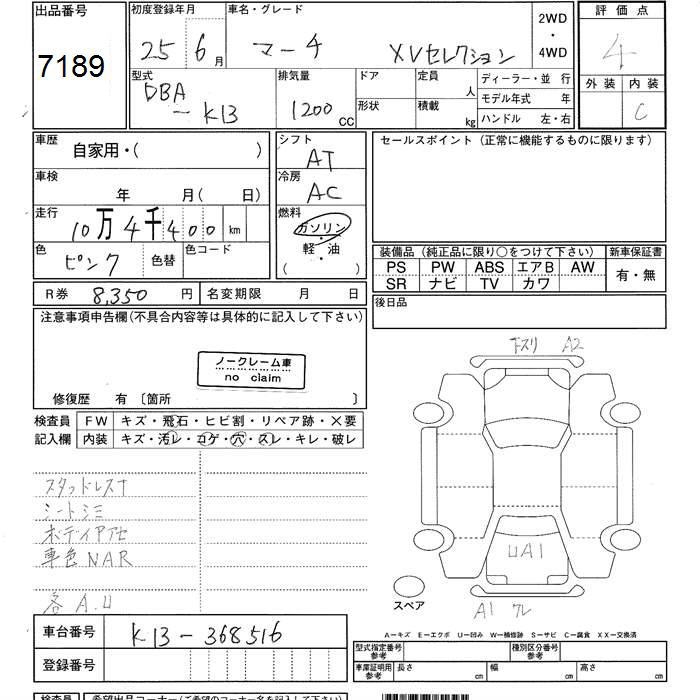 出品番号
7189
初度登録年月
25 6 月
車名・グレード
マーチ XVセレクション
2WD
・
4WD
評価点
4
外装 内装
C
型式
DBA
- K13
排気量
1200
CC
ドア
形状
定員
人
積載
kg
ディーラー・並 行
モデル年式 年
ハンドル 左・右
車歴
自家用・( )
車検
年 月(日)
走行
10万4千400 km
色
ピンク
色替
色コード
シフト
AT
冷房
AC
燃料
ガソリン
・
軽・油
( )
セールスポイント (正常に機能するものに限ります)
装備品 (純正品に限り○をつけて下さい)
新車保証書
PS PW ABS エアB AW
SR ナビ TV カワ
有・無
R券 8,350 円 名変期限 月 日
後日品
注意事項申告欄(不具合内容等は具体的に記入して下さい)
ノークレーム車
no claim
修復歴 有 〔箇所 〕
検査員 FW キズ・飛石・ヒビ割・リペア跡・×要
記入欄 内装 キズ・汚レ・コゲ・穴・スレ・キレ・破レ
スタッドレスナ
シートシミ
ボディイアセ
車色NAR
各 A.U
下スリ A2
UA1
スペア
A1 ワレ
車台番号 K13-368516
登録番号
A−キズ E−エクボ U−凹み W−補修跡 S−サビ C−腐食 XX−交換済
型式指定番号
参考
種別区分番号
参考
車庫証明用
参考
長さ cm 幅 cm 高さ cm
検査員 希望出品コーナー(ご希望のコーナー名を記入して下さい)